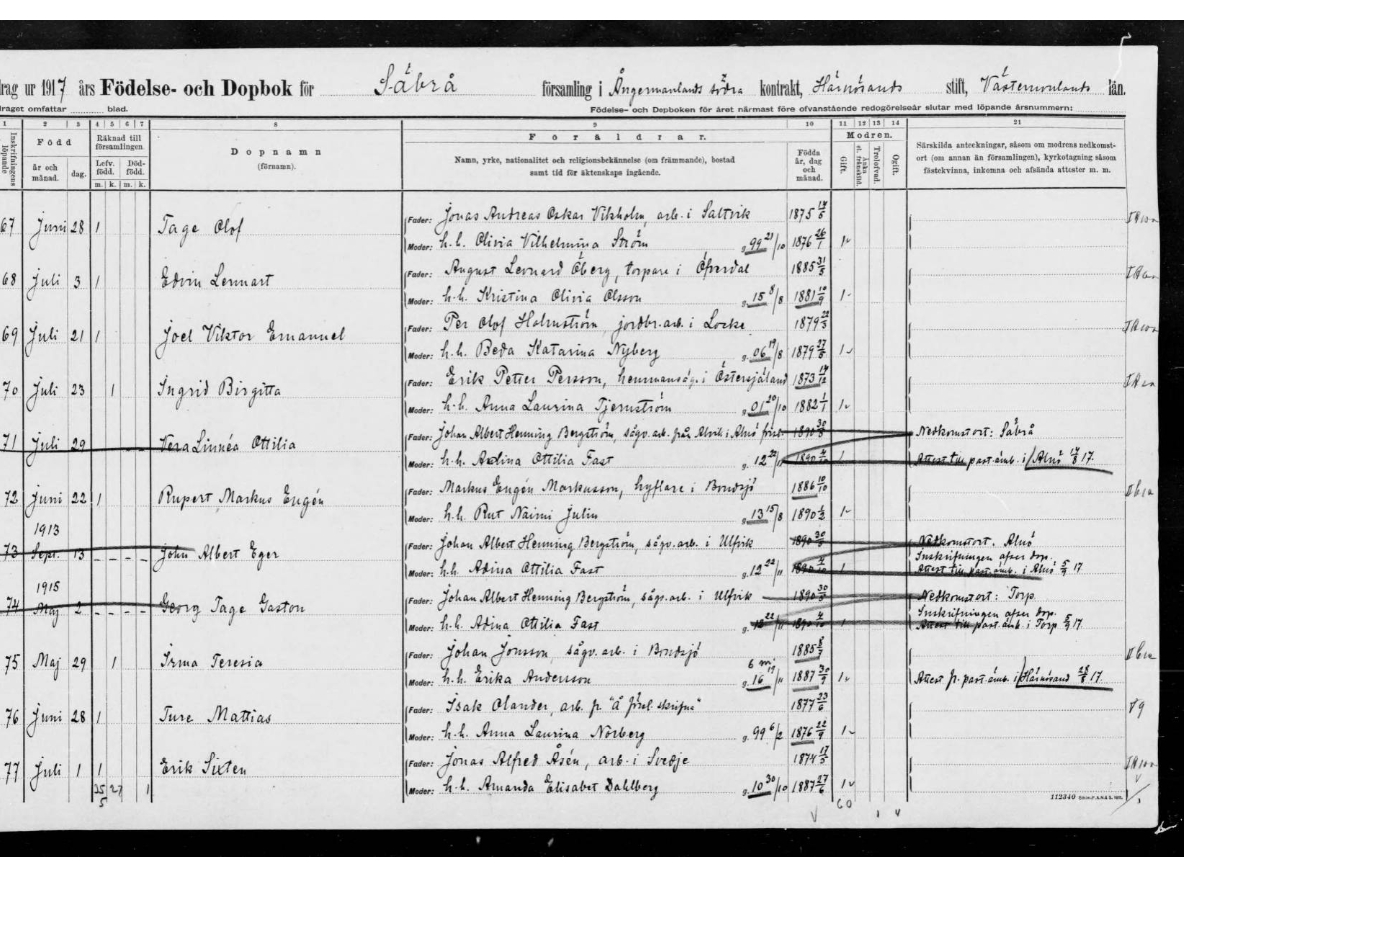 drag ur 1917 års Födelse- och Dopbok för Säbrå församling i Ångermanlands södra kontrakt, Härnösands stift, Västernorrlands län.
draget omfattar blad. Födelse- och Dopboken för året närmast före ofvanstående redogörelseår slutar med löpande årsnummer:
1 2 3 4 5 6 7 8 9 10 11 12 13 14 21
Inskrifningens löpande
Född
år och månad. dag.
Räknad till församlingen.
Lefv. född. Död- född.
m. k. m. k.
Dopnamn
(förnamn).
Föräldrar.
Namn, yrke, nationalitet och religionsbekännelse (om främmande), bostad
samt tid för äktenskaps ingående.
Födda år, dag och månad.
Modren.
Gift. Änka Trolofvad. Ogift.
Särskilda anteckningar, såsom om modrens nedkomst-
ort (om annan än församlingen), kyrkotagning såsom
fästekvinna, inkomna och afsända attester m. m.
Fader: Jonas Andreas Oskar Vikholm, arb. i Saltvik 1875
67 Juni 28 1 Tage Olof
Moder: h.h. Olivia Vilhelmina Ström g. 99 21/10 1876 26/1 1
Fader: August Leonard Öberg, torpare i Öfverdal 1885 31/5
68 Juli 3 1 Edvin Lennart
Moder: h.h. Kristina Olivia Olsson g. 15 8/8 1881 10/9 1
Fader: Per Olof Holmström, jordbr.arb. i Locke 1879
69 Juli 21 1 Joel Viktor Emanuel
Moder: h.h. Beda Katarina Nyberg g. 06 19/8 1879 1
Fader: Erik Petter Persson, hemmansäg. i Östersjäland 1873
70 Juli 23 1 Ingrid Birgitta
Moder: h.h. Anna Laurina Tjernström g. 01 20/10 1882 1/1 1
Fader: Johan Albert Henning Bergström, sågv.arb. från Alvik i Alnö förs. 1890 30/3 Nedkomstort: Säbrå
71 Juli 29 Vera Linnéa Ottilia
Moder: h.h. Adina Ottilia Fast g. 12 22/11 1890 4/10 1 Attest till past.ämb. i Alnö 14/8 17.
Fader: Markus Eugén Markusson, hyflare i Brudsjö 1886 10/10
72 Juni 22 1 Rupert Markus Eugén
Moder: h.h. Rut Naimi Julin g. 13 15/8 1890 1/3 1
1913
Fader: Johan Albert Henning Bergström, sågv.arb. i Ulfvik 1890 30/3 Nedkomstort. Alnö
73 Sept. 13 - - - - John Albert Eger Inskrifningen afser dop.
Moder: h.h. Adina Ottilia Fast g. 12 22/11 1890 4/10 1 Attest till past.ämb. i Alnö 5/9 17
1915
Fader: Johan Albert Henning Bergström, sågv.arb. i Ulfvik 1890 30/3 Nedkomstort: Torp
74 Maj 2 - - - - Georg Tage Gaston Inskrifningen afser dop.
Moder: h.h. Adina Ottilia Fast g. 12 22/11 1890 4/10 1 Attest till past.ämb. i Torp 5/9 17.
Fader: Johan Jonsson, sågv.arb. i Brudsjö 1885
75 Maj 29 1 Irma Teresia
Moder: h.h. Erika Andersson g. 16 19/11 1887 30/9 1 Attest fr. past.ämb. i Härnösand 28/8 17.
Fader: Isak Olander, arb. 1877 23/6
76 Juni 28 1 Ture Mattias
Moder: h.h. Anna Laurina Norberg g. 99 6/2 1876 22/9 1
Fader: Jonas Alfred Åsén, arb. i Svedje 1874 17/3
77 Juli 1 1 Erik Sixten
Moder: h.h. Amanda Elisabet Dahlborg g. 10 30/10 1887 27/6 1
25 27 1 60
112340